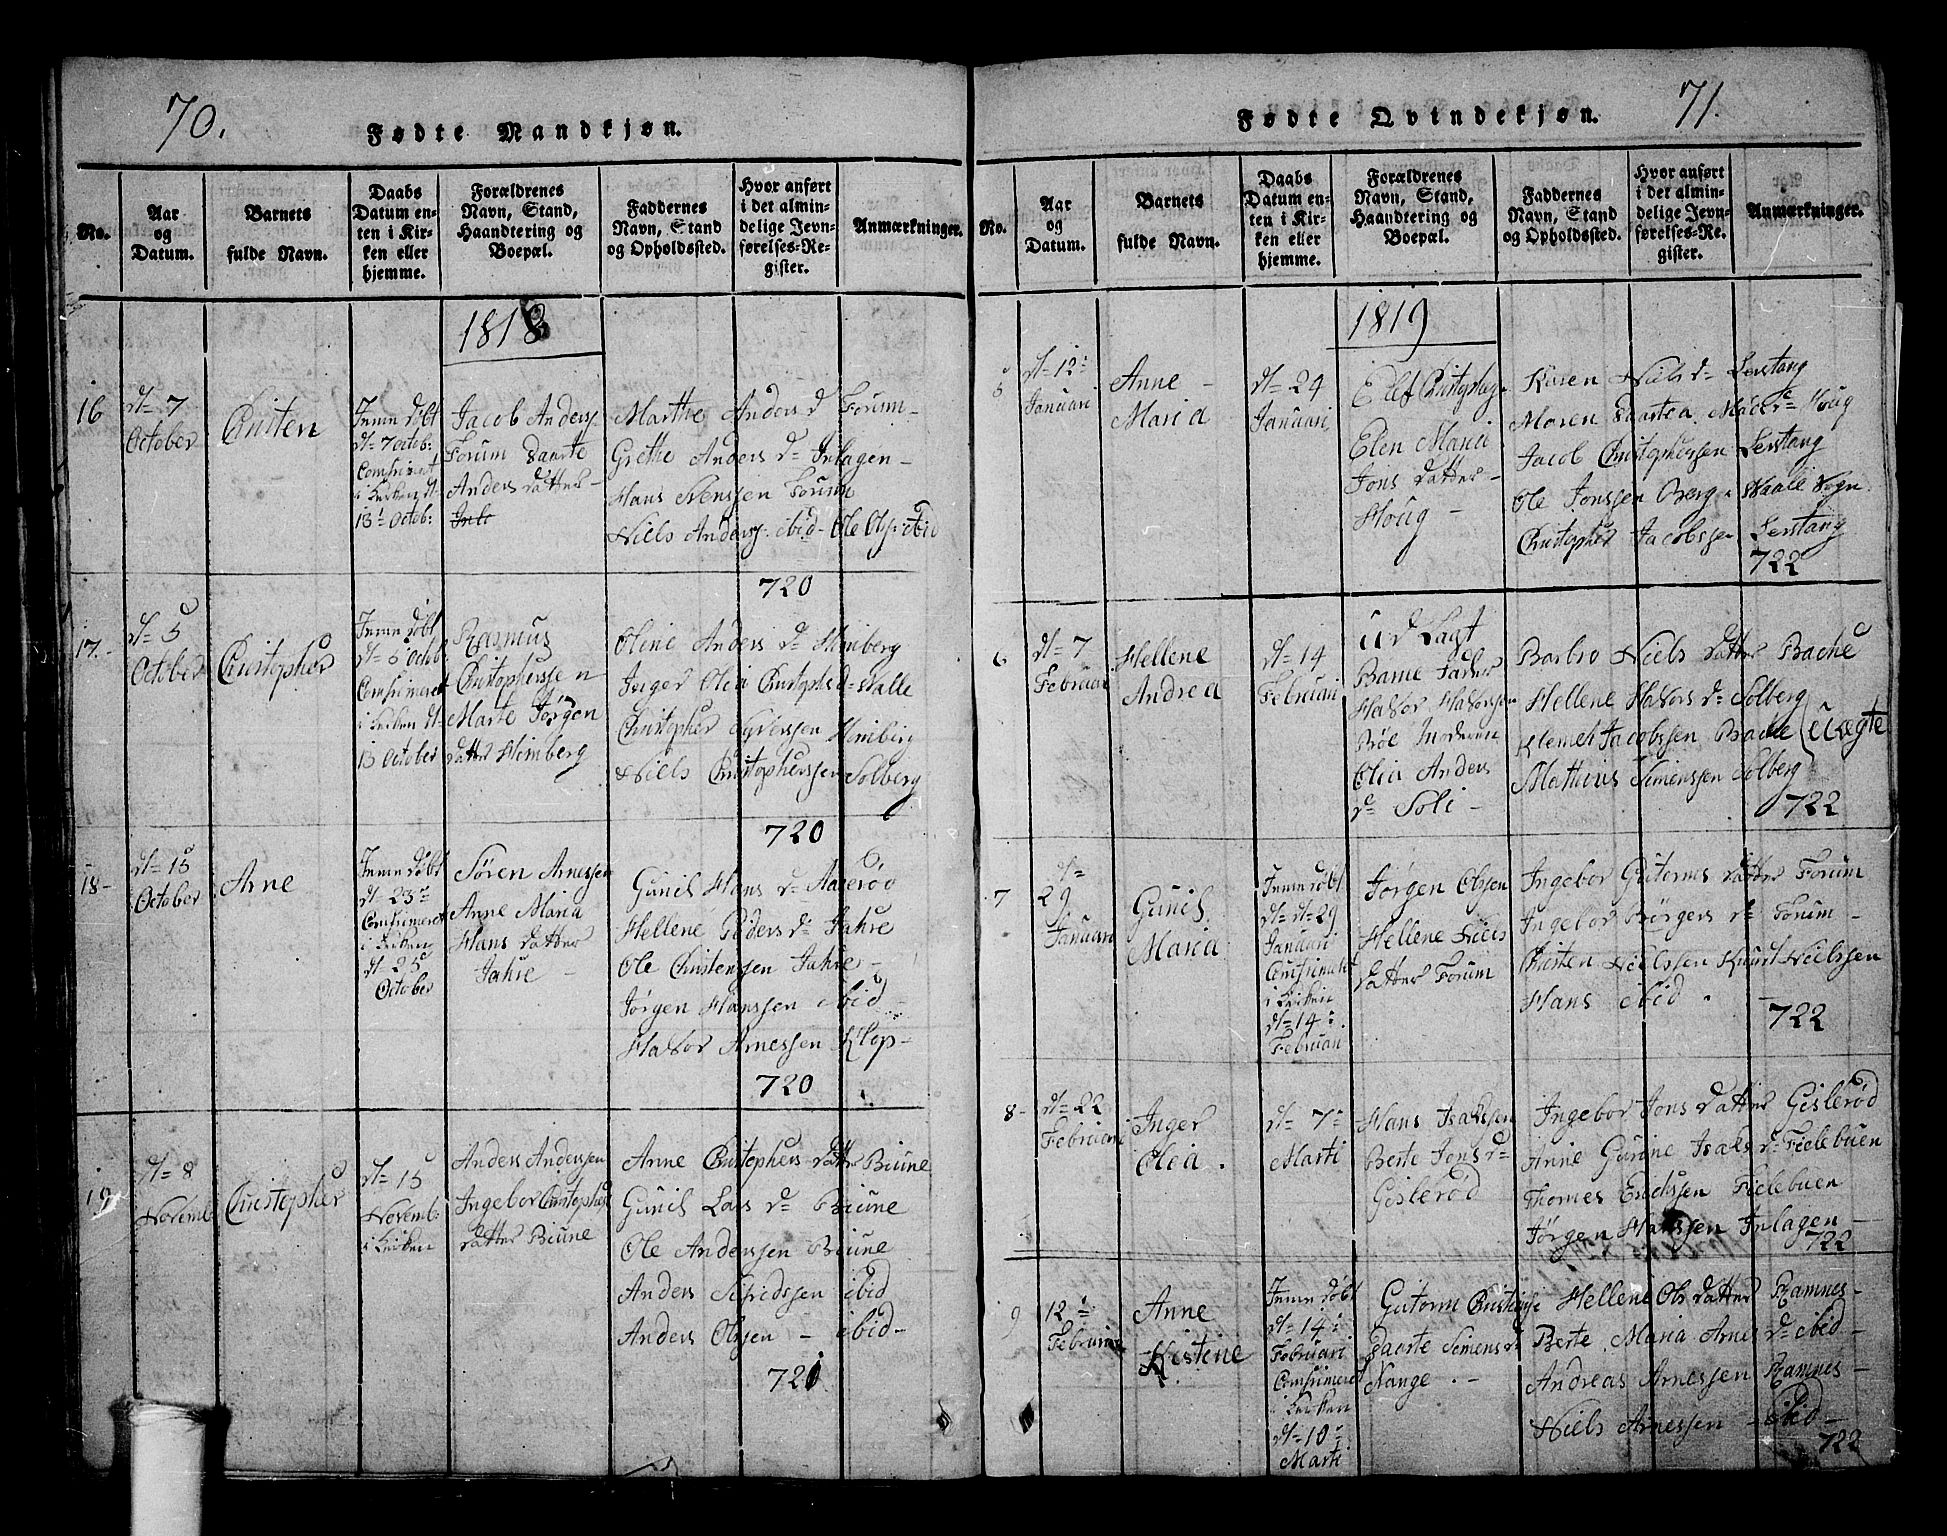 70.
Fødte Mandkjøn.
No.
Aar
og
Datum.
Barnets
fulde Navn.
Daabs
Datum en-
ten i Kir-
ken eller
hjemme.
Forældrenes
Navn, Stand,
Haandtering og
Boepæl.
Faddernes
Navn, Stand
og Opholdssted.
Hvor anført
i det almin-
delige Jevn-
førelses-Re-
gister.
Anmærkninger.
1818
16
d= 7
October
Christen
Jnme døbt
d= 7 octob:
Comfirmert
i Kirken d=
13' Octob:
Jacob Anders.
Forum Daarte
Anders datter -
Marthe Anders d Forum -
Grethe Anders d= Inlagen -
Hans Svenssen Forum
Niels Anders. ibid - Ole Ols. ibid
720
17.
d= 5
October
Christopher
Jnme døbt
d= 5' Octob.
Comfirmeret
i Kirken d=
13 October
Rasmus
Christopherssen
Marte Jørgen
datter Himberg
Oline Anders d= Himberg
Inger Olea Christophs d= Walle
Christopher Syverssen Himberg
Niels Christopherssen Solberg
720
18 -
d= 15
October
Arne
Jnme døbt
d= 23'
Comfirmeret
i Kirken
d= 25
October
Søren Arnessen
Anne Maria
Hans datter
Jahre -
Gunil Hans d= Aaserød
Hellene Peders d= Jahre
Ole Christenssen Jahre -
Jørgen Hanssen ibid -
Halvor Arnessen Klop -
720
19
d= 8
Novemb
Christopher
d= 15
Novemb:
i Kirken
Anders Anderssen
Ingebor Christophers
datter Biune
Anne Christophers datter Biune
Gunil Lars d= Biune
Ole Anderssen Biune
Anders Sifredssen ibid
Anders Olssen - ibid -
721
71.
Fødte Qvindekjøn.
No.
Aar
og
Datum.
Barnets
fulde Navn.
Daabs
Datum en-
ten i Kir-
ken eller
hjemme.
Forældrenes
Navn, Stand,
Haandtering og
Boepæl.
Faddernes
Navn, Stand
og Opholdssted.
Hvor anført
i det almin-
delige Jevn-
førelses-Re-
gister.
Anmærkninger.
1819
5
d= 12'
Januari
Anne -
Maria
d= 24
Januari
Elef Christophs.
Elen Maria
Jons datter -
Houg -
Karen Niels d= Lerstang
Maren Daartea Mads d= Houg
Jacob Christopherssen Lerstang
Ole Jonssen Berg. Waale Sogn.
Christopher Jacobssen Lerstang
722
6
d= 7
Februari
Hellene
Andrea
d= 14
Februari
Ud Lagt
Barne Fader
Halvor Halvorsen
Bøe Moderen
Olia Anders
d= Soli -
Barbro Niels datter Bache
Hellene Halvors d= Solberg
Klemet Jacobssen Bache
Mathius Simenssen Solberg
Uægte
722
7
d=
29
Januari
Gunil
Maria
Jnme døbt
d= d= 29
Januari
Comfirmert
i Kirken
d= 14'
Februari
Jørgen Olssen
Hellene Niels
datter Forum
Ingebor Gutorms datter Forum
Ingebor Børgers d= Forum -
Christen Nielssen Knut Nielssen
Hans ibid . -
722
8 -
d= 22
Februari
Inger
Olea .
d= 7'
Marti
Hans Isakssen
Berte Jons d=
Gislerød
Ingebor Jons datter Gislerød
Anne Gurine Isaks d= Fielebuen
Thomes Erichssen Fielebuen
Jørgen Hanssen Inlagen -
722
9
12'
Februari
Anne
Kistene
Jnme døbt
d= 14'
Februari
Comfirmeret
i Kirken
d= 10'
Marti
Gutorm Christens.
Daarte Simens d=
Nange . -
Hellene Ols datter Ramnes -
Berte Maria Arnes d= ibid -
Andreas Arnessen Ramnes -
Niels Arnessen - ibid -
722